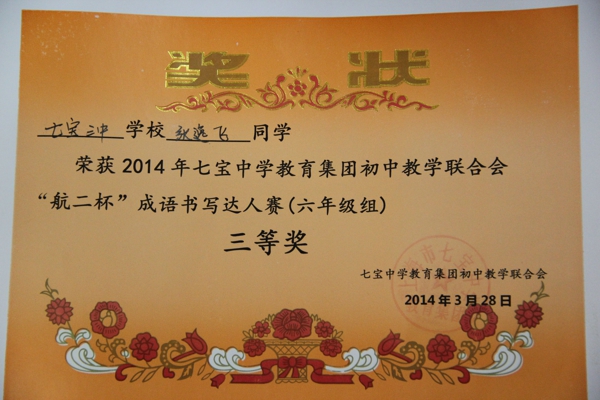 奖 状
七宝二中 学校 张逸飞 同学
荣获 2014 年七宝中学教育集团初中教学联合会
“航二杯”成语书写达人赛(六年级组)
三等奖
七宝中学教育集团初中教学联合会
2014 年 3 月 28 日